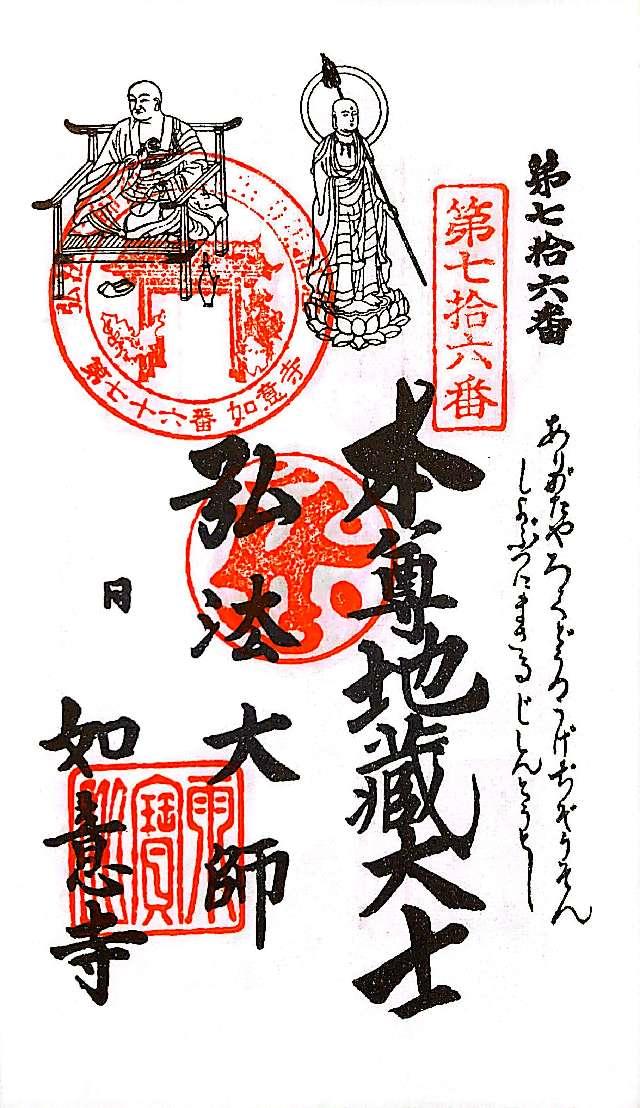 第七拾六番
ありがたやろくどうのうげぢぞうそん
しよぶつにまさるじしんとうとし
第七拾六番
本尊地藏大士
弘法大師
日
如意寺
第七十六番 如意寺
雨寶